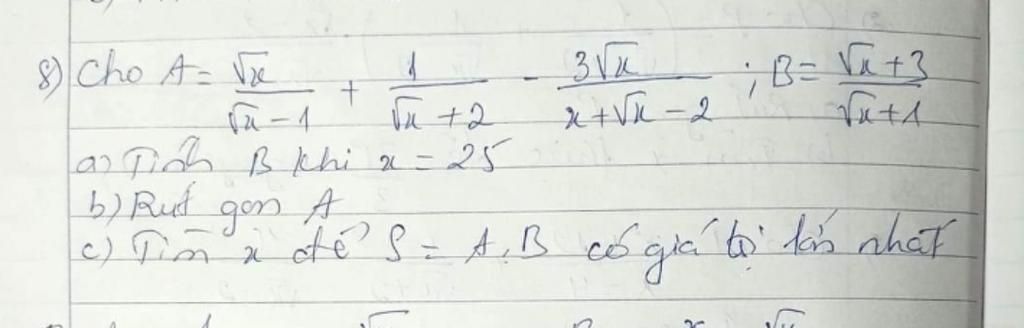 8) Cho A = √x/(√x - 1) + 1/(√x + 2) - 3√x/(x + √x - 2) ; B = (√x + 3)/(√x + 1)
a) Tính B khi x = 25
b) Rút gọn A
c) Tìm x để S = A.B có giá trị lớn nhất